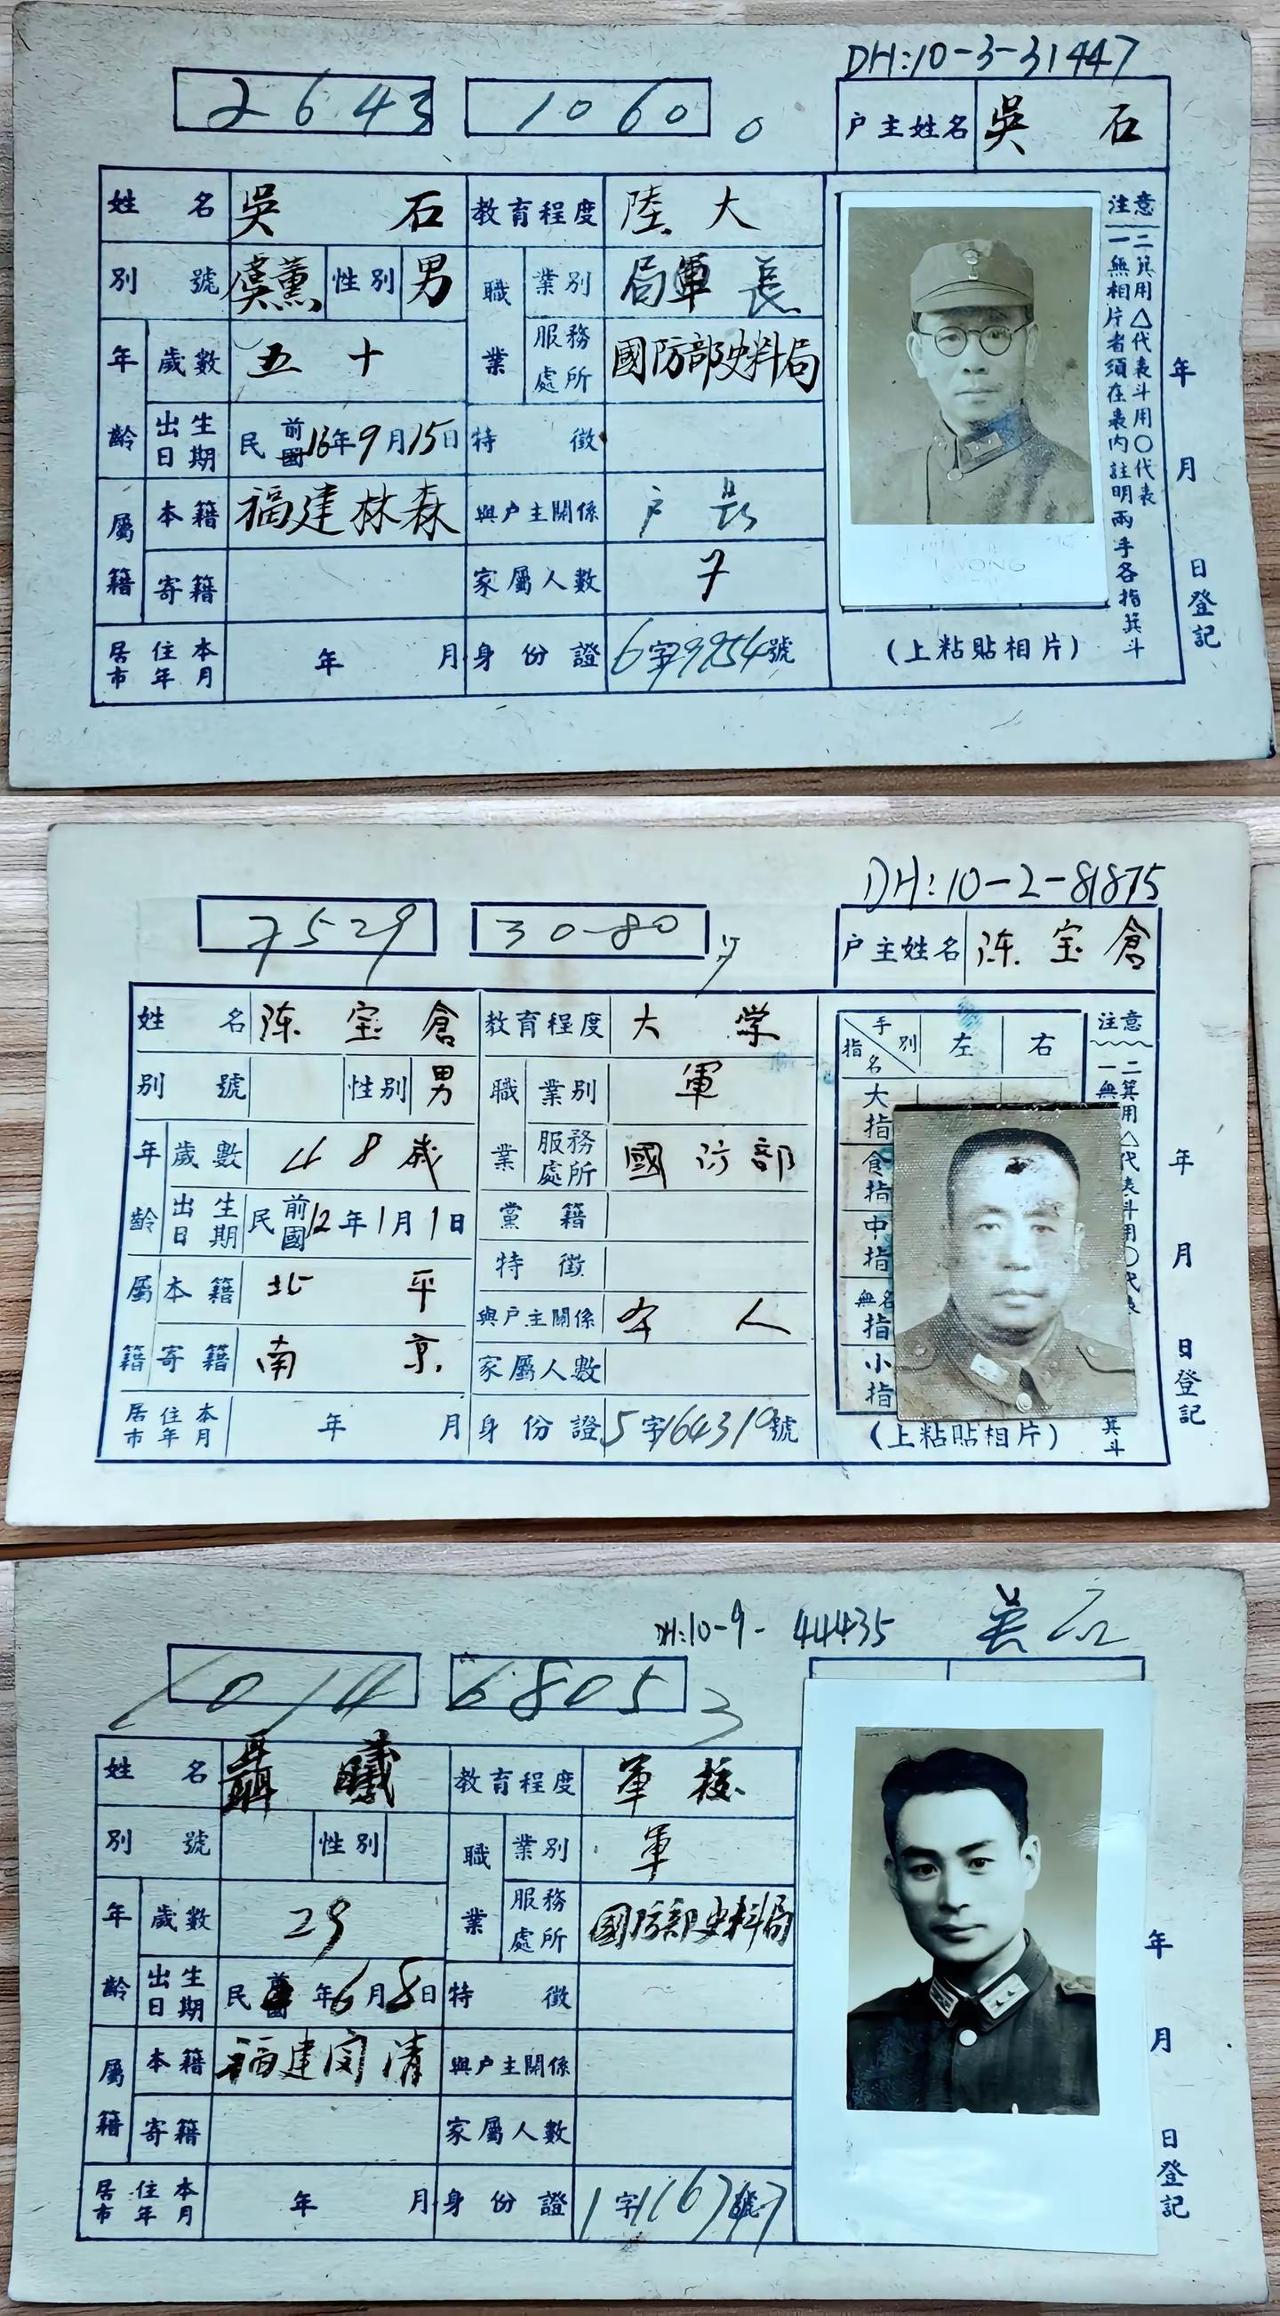 DH:10-3-31447
2643 1060 0
户主姓名 吳石
姓名 吳石 教育程度 陸大
別號 虞薰 性別 男 職業 業別 軍
年齡 歲數 五十 服務處所 國防部史料局 局長
出生日期 民前國16年9月15日 特徵
屬籍 本籍 福建林森 與户主關係 户長
寄籍 家屬人數 7
居住本市年月 年 月 身份證 6字9954號
注意
一無相片者須在表内註明兩手各指箕斗
二箕用△代表斗用○代表
(上粘貼相片)
年 月 日登記
DH:10-2-81875
7529 30-80
户主姓名 陈宝倉
姓名 陈宝倉 教育程度 大学
別號 性別 男 職業 業別 軍
年齡 歲數 48歲 服務處所 國防部
出生日期 民前國12年1月1日 黨籍
特徵
屬籍 本籍 北平 與户主關係 本人
寄籍 南京 家屬人數
居住本市年月 年 月 身份證 5字164310號
手別 指名 左 右
大指
食指
中指
無名指
小指
注意
一無
二箕用△代表斗用○代表
箕斗
(上粘貼相片)
年 月 日登記
DH:10-9-44435 吳石
1014 6805 3
姓名 聶曦 教育程度 軍校
別號 性別 職業 業別 軍
年齡 歲數 29 服務處所 國防部史料局
出生日期 民 年6月8日 特徵
屬籍 本籍 福建闽清 與户主關係
寄籍 家屬人數
居住本市年月 年 月 身份證 1字 號
年 月 日登記